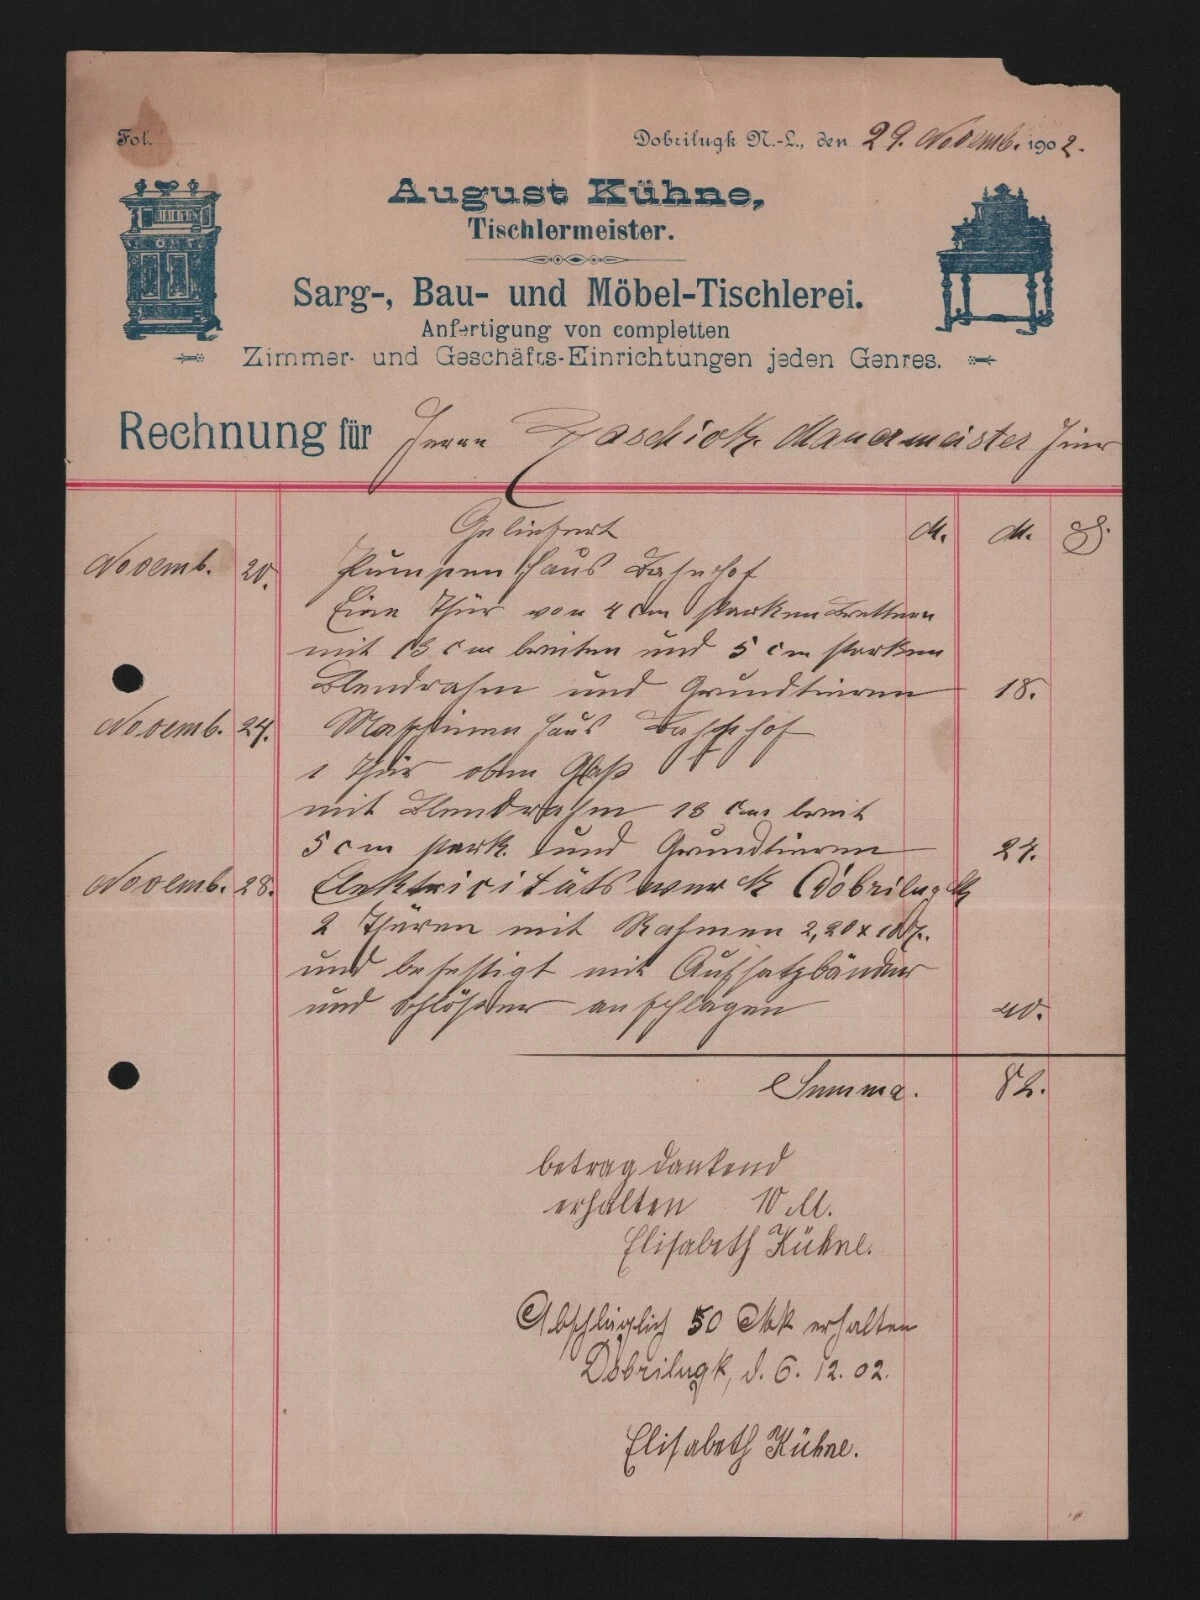 Fol.
Dobrilugk N.-L., den 29. Novemb. 1902.
August Kühne,
Tischlermeister.
Sarg-, Bau- und Möbel-Tischlerei.
Anfertigung von completten
Zimmer- und Geschäfts-Einrichtungen jeden Genres.
Rechnung für Herrn Maurermeister hier
Geliefert M. M. ₰
Novemb. 20. Pumpenhaus Bahnhof
Eine Thür von 4 cm starken Brettern
mit 13 cm breiten und 5 cm starken
Blendrahm und Grundtieren 18.
Novemb. 24. Maschinenhaus Bahnhof
1 Thür oben Glaß
mit Blendrahm 13 cm breit
5 cm stark. und Grundtieren 24.
Novemb. 28. Elektricitätswerk Dobrilugk
2 Thüren mit Rahmen 2,20 x 1,07.
und befestigt mit Aufsatzbänder
und Schlößer anschlagen 40.
Summa. 82.
betrag dankend
erhalten 10 M.
Elisabeth Kühne.
Abschläglich 50 Mk erhalten
Dobrilugk, d. 6. 12. 02.
Elisabeth Kühne.